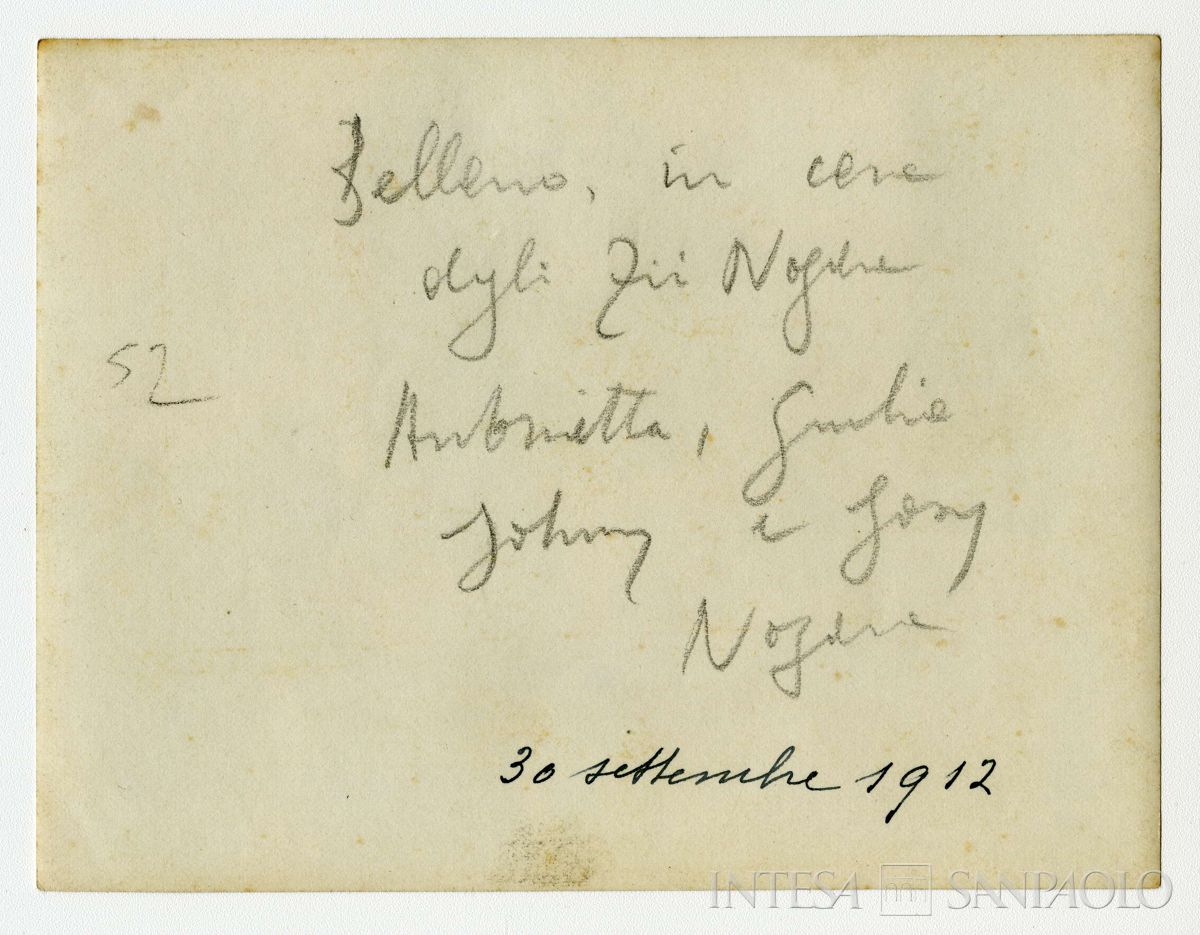 Belleno, in casa
degli Zii Nogara
52
Antonietta, Giulia
Johnny e Gory
Nogara
30 settembre 1912
INTESA SANPAOLO